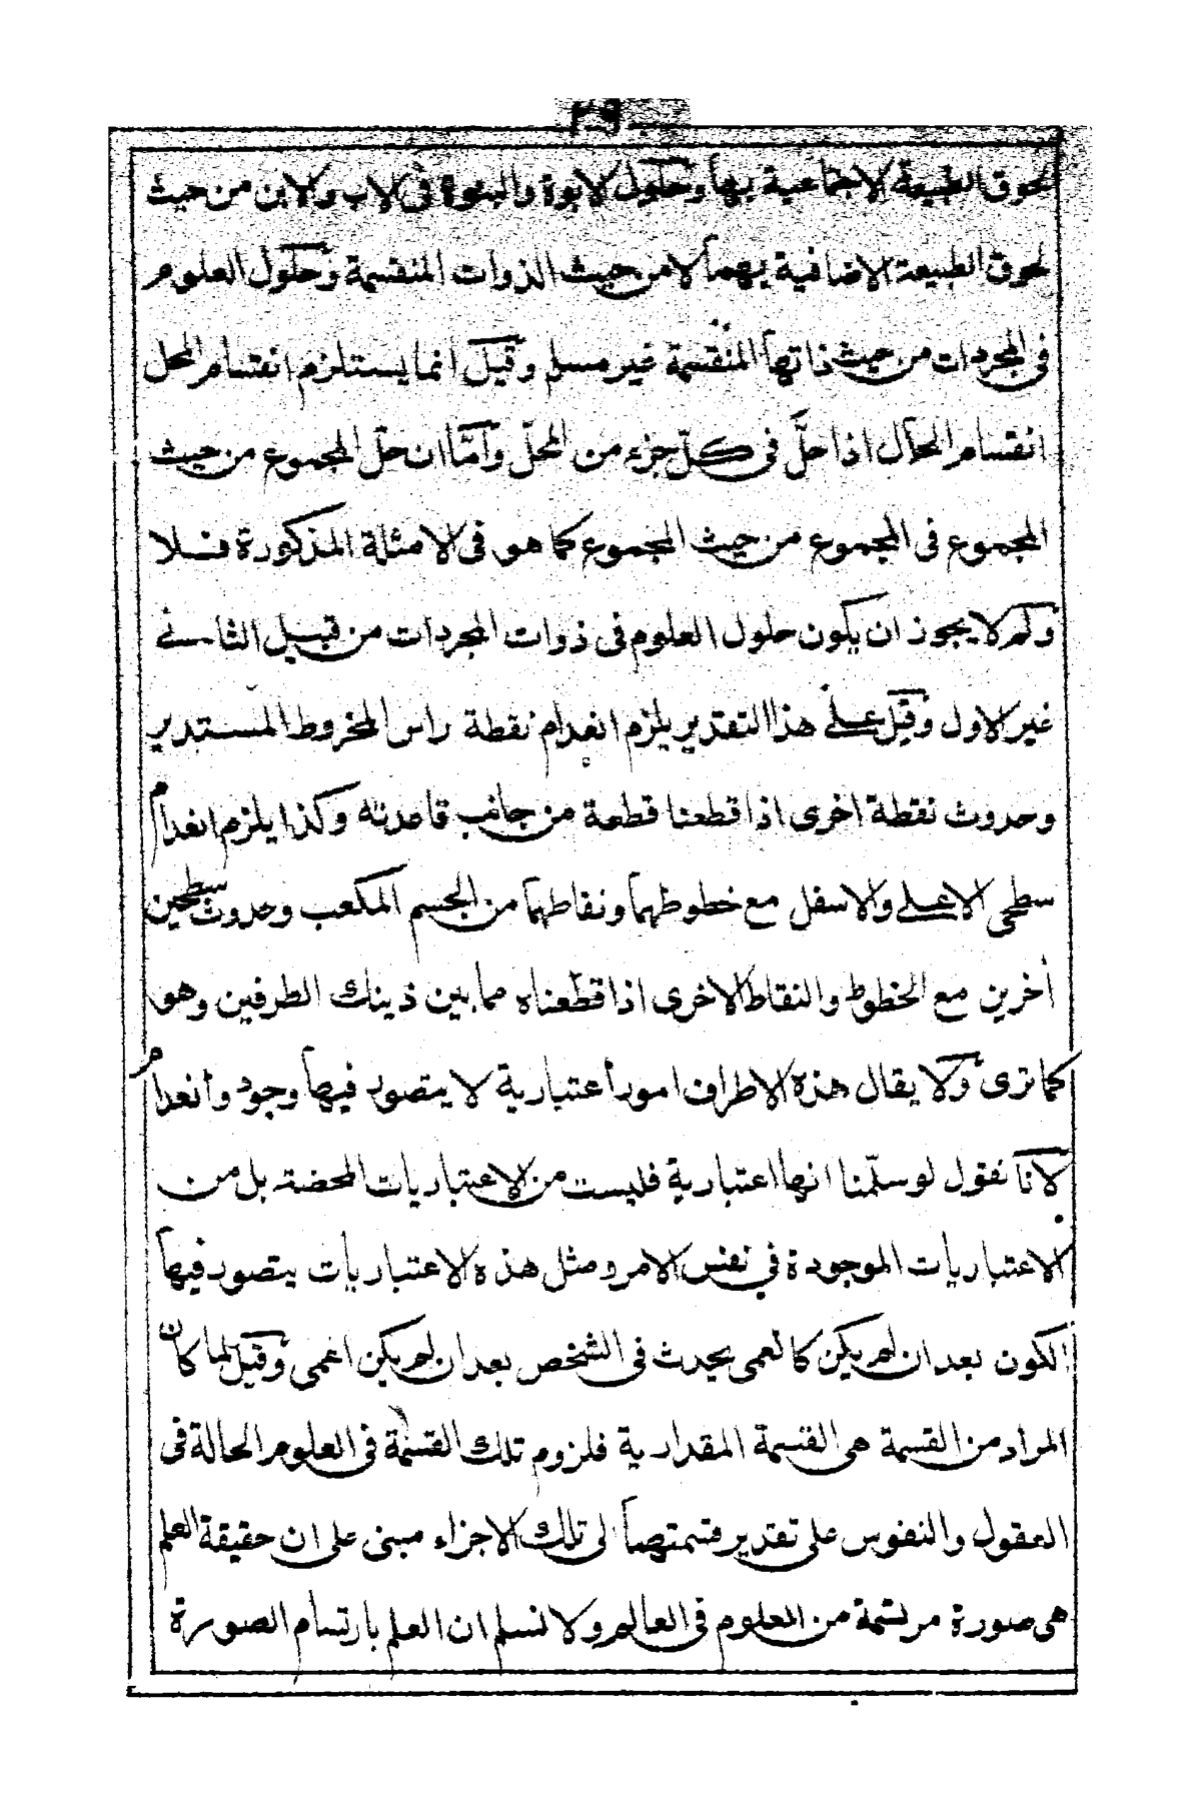 ٣٩
لحوق الطبيعة الاجتماعية بها وحلول الابوة والبنوة فى الاب والابن من حيث
لحوق الطبيعة الاضافية بهما لا من حيث الذوات المنقسمة وحلول العلوم
فى المجردات من حيث ذاتها المنقسمة غير مسلم وقيل انما يستلزم انقسام المحل
انقسام الحال اذا حلَّ فى كلّ جزء من المحلّ وأمّا ان حلّ المجموع من حيث
المجموع فى المجموع من حيث المجموع كما هو فى الامثلة المذكورة فلا
ولم لا يجوز ان يكون حلول العلوم فى ذوات المجردات من قبيل الثانے
غير الاول وقيل علے هذا التقدير يلزم انعدام نقطة راس المخروط المستدير
وحدوث نقطة اخرى اذا قطعنا قطعة من جانب قاعدته وكذا يلزم انعدام
سطحى الاعلے والاسفل مع خطوطهما ونقاطهما من الجسم المكعب وحدوث سطحين
أخرين مع الخطوط والنقاط الاخرى اذا قطعناه مما بين ذينك الطرفين وهو
كما ترى ولا يقال هذه الاطراف امور أعتبارية لا يتصور فيها وجود وأنعدام
لانا نقول لو سلّمنا انها اعتبارية فليست من الاعتباريات المحضة بل من
الاعتباريات الموجودة فى نفس الامر ومثل هذه الاعتباريات يتصور فيها
الكون بعد ان لم يكن كالعمى يحدث فى الشخص بعد ان لم يكن اعمى وقيل لما كان
المراد من القسمة هى القسمة المقدارية فلزوم تلك القسمة فى العلوم الحالة فى
العقول والنفوس على تقدير قسمتهما الى تلك الاجزاء مبنى على ان حقيقة العلم
هى صورة مرتسمة من المعلوم فى العالم ولا نسلم ان العلم بارتسام الصورة